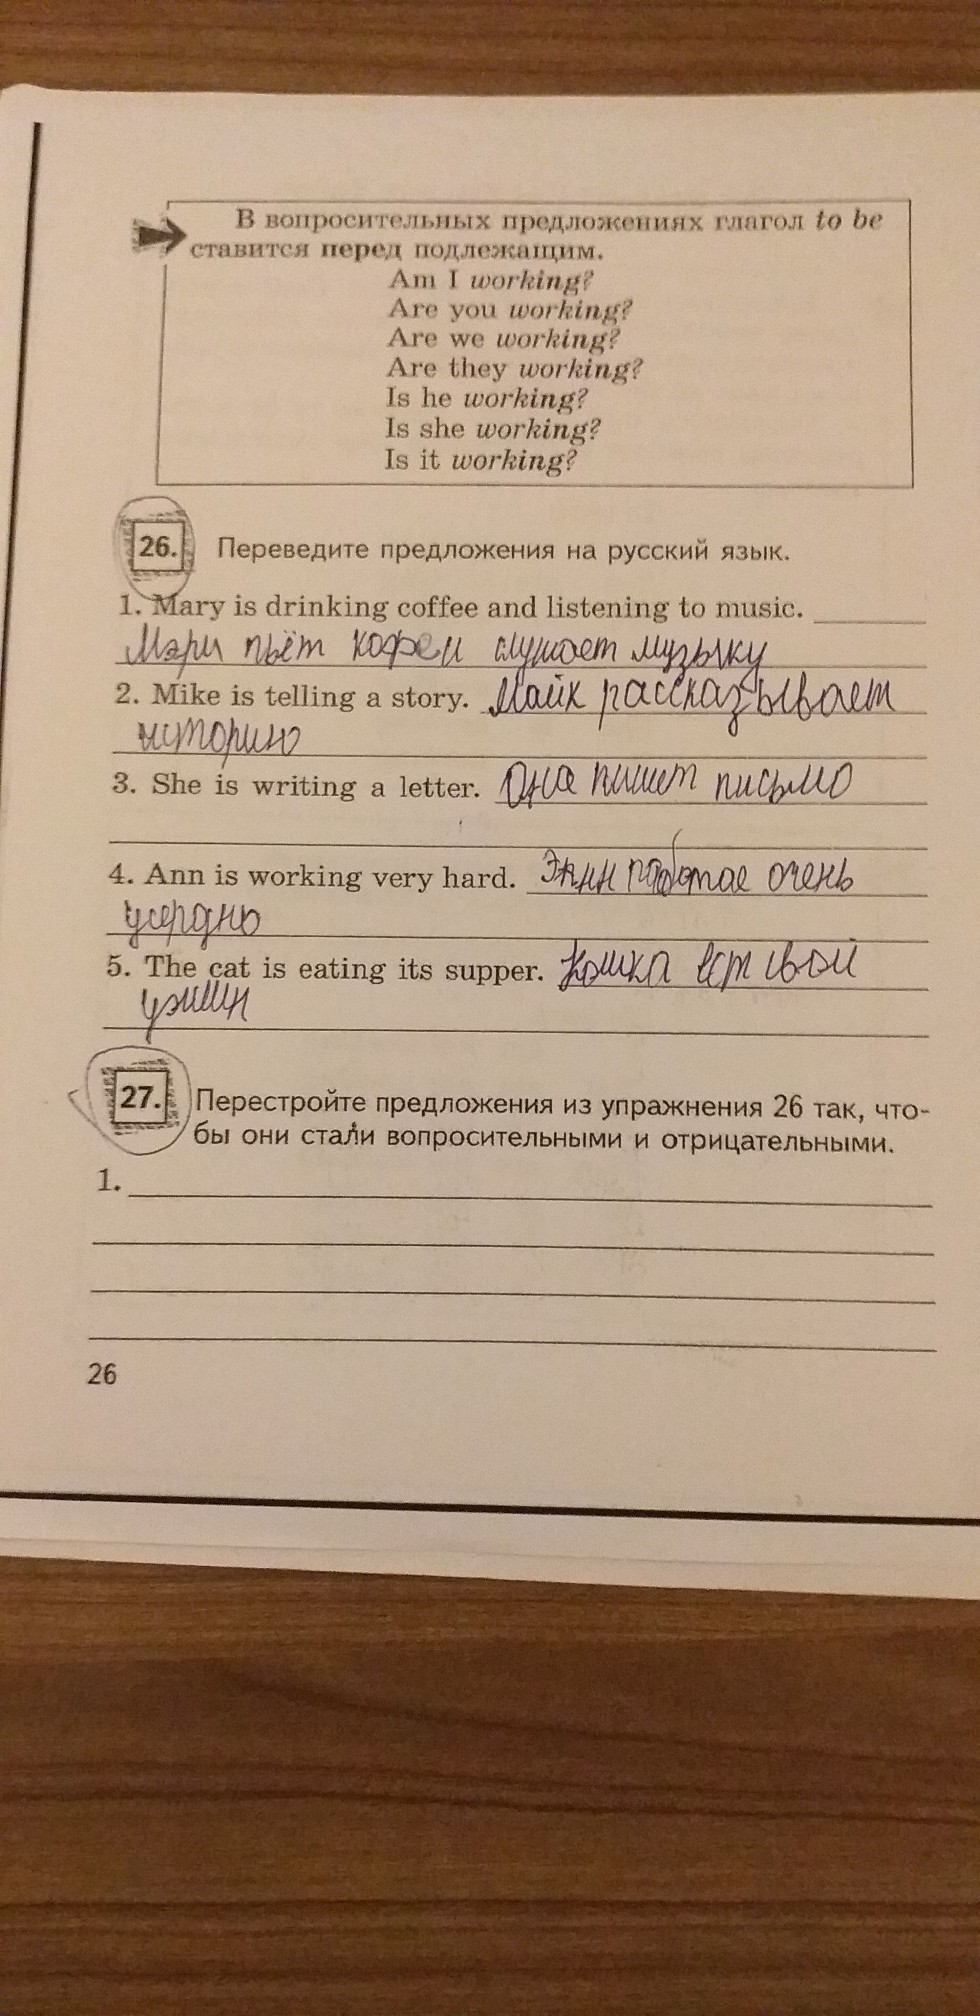 В вопросительных предложениях глагол to be
ставится перед подлежащим.
Am I working?
Are you working?
Are we working?
Are they working?
Is he working?
Is she working?
Is it working?
26. Переведите предложения на русский язык.
1. Mary is drinking coffee and listening to music.
Мэри пьёт кофе и слушает музыку
2. Mike is telling a story. Майк рассказывает
историю
3. She is writing a letter. Она пишет письмо
4. Ann is working very hard. Энн работае очень
усердно
5. The cat is eating its supper. Кошка ест свой
ужин
27. Перестройте предложения из упражнения 26 так, что-
бы они стали вопросительными и отрицательными.
1.
26